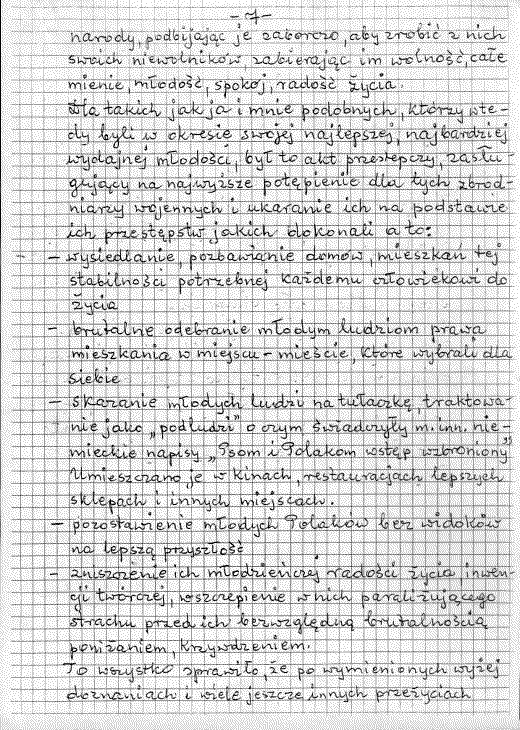 - 7 -
narody, podbijając je zaborczo, aby zrobić z nich
swoich niewolników zabierając im wolność, całe
mienie, młodość, spokój, radość życia.
Dla takich jak ja i mnie podobnych, którzy wte-
dy byli w okresie swojej najlepszej, najbardziej
wydajnej młodości, był to akt przestępczy, zasłu-
gujący na najwyższe potępienie dla tych zbrod-
niarzy wojennych i ukaranie ich na podstawie
ich przestępstw jakich dokonali a to:
- wysiedlanie, pozbawianie domów, mieszkań tej
stabilności potrzebnej każdemu człowiekowi do
życia
- brutalne odebranie młodym ludziom prawa
mieszkania w miejscu - mieście, które wybrali dla
siebie
- skazanie młodych ludzi na tułaczkę, traktowa-
nie jako „podludzi" o czym świadczyły m.inn. nie-
mieckie napisy „Psom i Polakom wstęp wzbroniony"
Umieszczano je w kinach, restauracjach lepszych
sklepach i innych miejscach.
- pozostawienie młodych Polaków bez widoków
na lepszą przyszłość
- zniszczenie ich młodzieńczej radości życia inwen-
cji twórczej, wszczepienie w nich paraliżującego
strachu przed ich bezwzględną brutalnością
poniżaniem, krzywdzeniem.
To wszystko sprawiło, że po wymienionych wyżej
doznaniach i wiele jeszcze innych przeżyciach